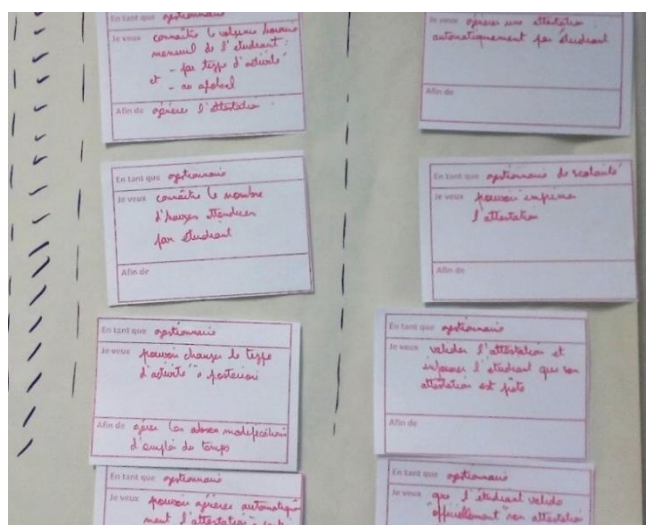 En tant que gestionnaire
Je veux connaître le volume horaire
mensuel de l'étudiant :
- par type d'activité
et - au global
Afin de générer l'attestation
En tant que gestionnaire
Je veux connaître le nombre
d'heures attendues
par étudiant
Afin de
En tant que gestionnaire
Je veux pouvoir changer le type
d'activité a posteriori
Afin de gérer les modifications
d'emploi du temps
En tant que gestionnaire
Je veux pouvoir générer automatique
ment l'attestation
Je veux générer une attestation
automatiquement par étudiant
Afin de
En tant que gestionnaire de scolarité
Je veux pouvoir imprimer
l'attestation
Afin de
En tant que gestionnaire
Je veux valider l'attestation et
informer l'étudiant que son
attestation est prête
Afin de
En tant que gestionnaire
Je veux que l'étudiant valide
"officiellement" son attestation